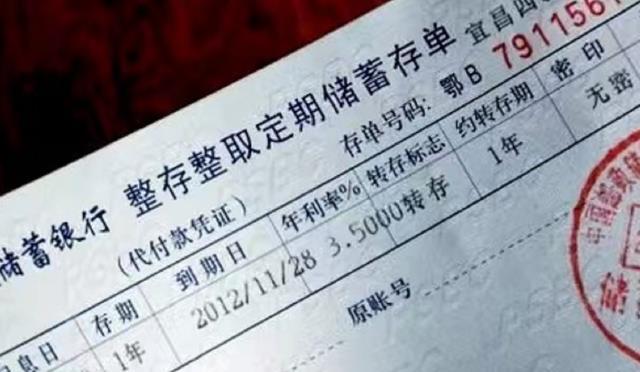 储蓄银行 整存整取定期储蓄存单 宜昌四
(代付款凭证) 存单号码: 鄂B 7911561
存期 到期日 年利率% 转存标志 约转存期 密印
息日 1年 2012/11/28 3.5000 转存 1年 无密
原账号
中国邮政储